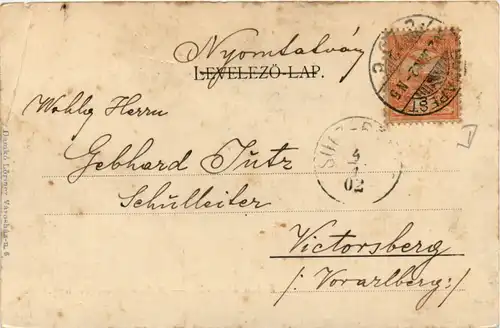 Nyomtatvány
LEVELEZŐ-LAP.
Wohlg Herrn
Gebhard Jutz
Schulleiter
Victorsberg
/: Vorarlberg :/
4
1
02